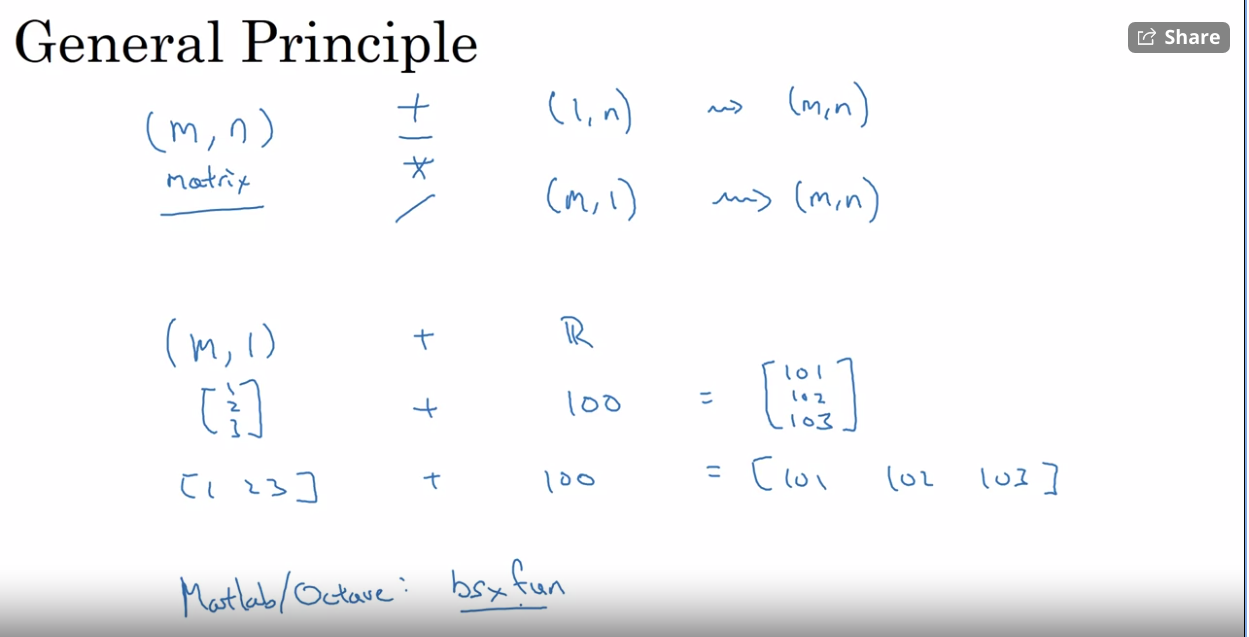 General Principle
Share
(m, n) + (1, n) ⇝ (m, n)
matrix - 
*
/ (m, 1) ⇝ (m, n)
(m, 1) + ℝ
[1 2 3] + 100 = [101 102 103]
[1 2 3] + 100 = [101 102 103]
Matlab/Octave: bsxfun